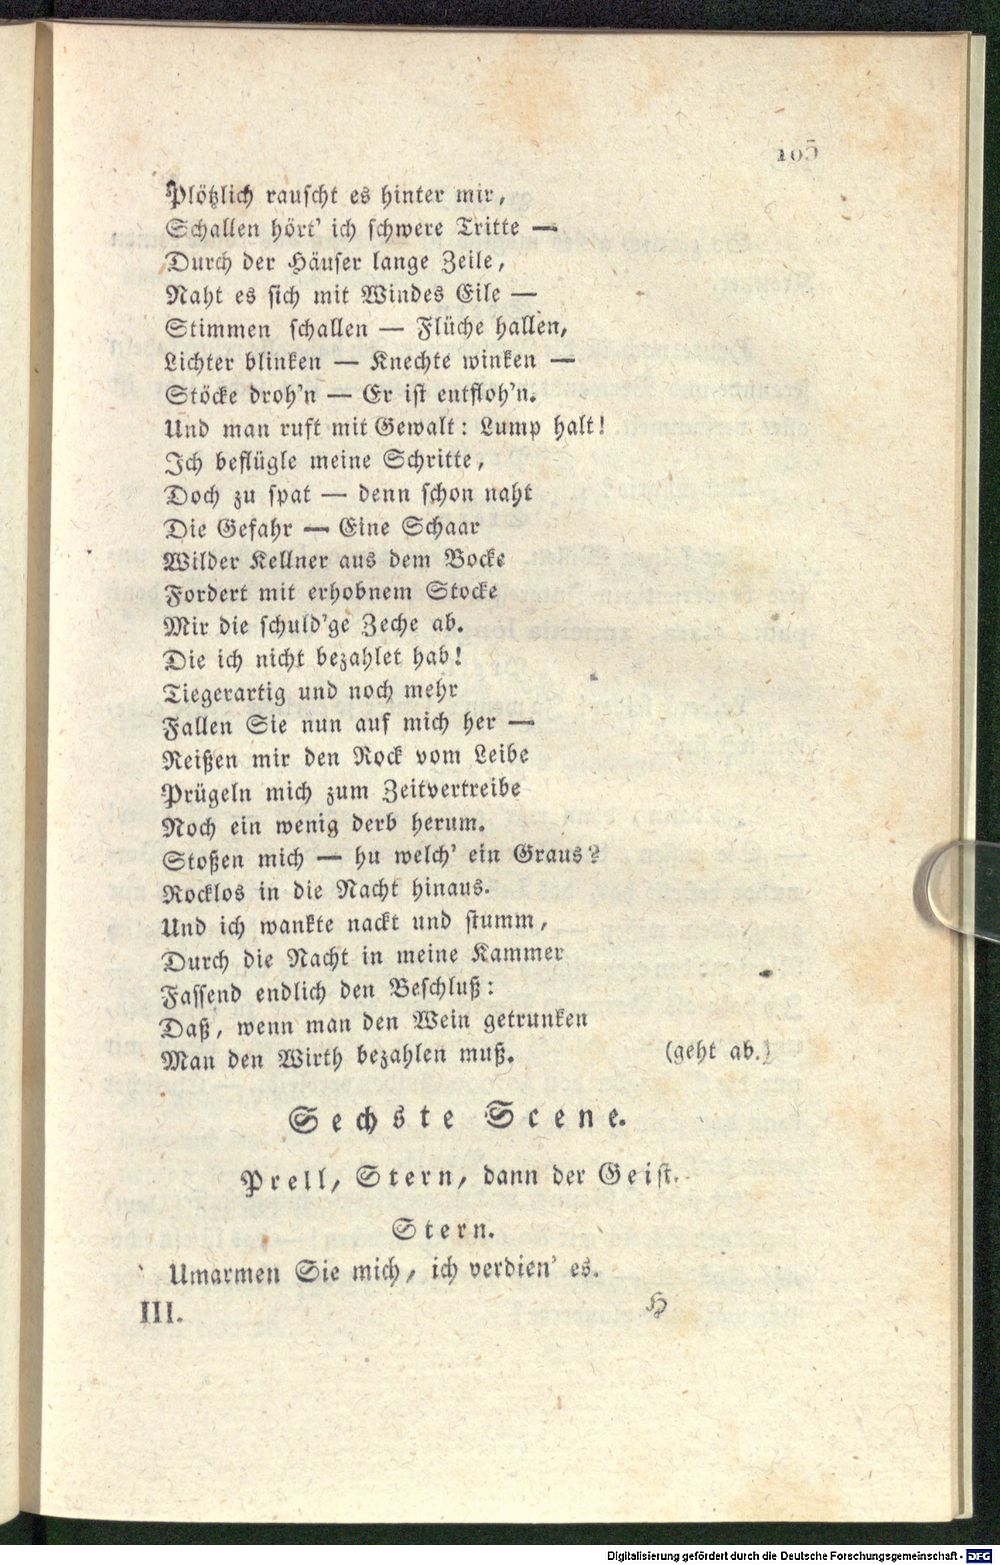 105
Plötzlich rauscht es hinter mir,
Schallen hört' ich schwere Tritte —
Durch der Häuser lange Zeile,
Naht es sich mit Windes Eile —
Stimmen schallen — Flüche hallen,
Lichter blinken — Knechte winken —
Stöcke droh'n — Er ist entfloh'n.
Und man ruft mit Gewalt: Lump halt!
Ich beflügle meine Schritte,
Doch zu spat — denn schon naht
Die Gefahr — Eine Schaar
Wilder Kellner aus dem Bocke
Fordert mit erhobnem Stocke
Mir die schuld'ge Zeche ab.
Die ich nicht bezahlet hab!
Tiegerartig und noch mehr
Fallen Sie nun auf mich her —
Reißen mir den Rock vom Leibe
Prügeln mich zum Zeitvertreibe
Noch ein wenig derb herum.
Stoßen mich — hu welch' ein Graus?
Rocklos in die Nacht hinaus.
Und ich wankte nackt und stumm,
Durch die Nacht in meine Kammer
Fassend endlich den Beschluß:
Daß, wenn man den Wein getrunken
Man den Wirth bezahlen muß. (geht ab.)
Sechste Scene.
Prell, Stern, dann der Geist.
Stern.
Umarmen Sie mich, ich verdien' es.
III. H
Digitalisierung gefördert durch die Deutsche Forschungsgemeinschaft - DFG